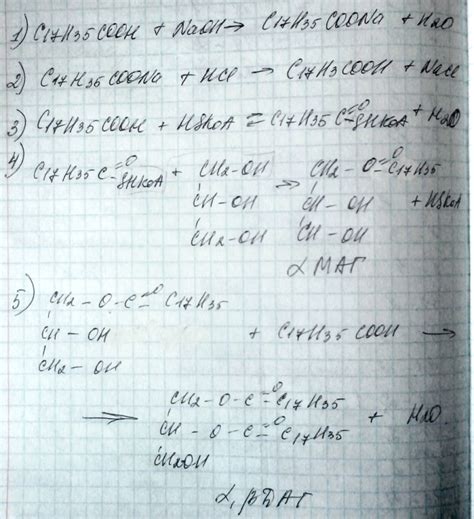 1) C17H35COOH + NaOH → C17H35COONa + H2O
2) C17H35COONa + HCl → C17H3COOH + NaCl
3) C17H35COOH + HSKoA = C17H35C=O SHKoA + H2O
4) C17H35C=O SHKoA + CH2-OH → CH2 - O=O C17H35
CH-OH CH - OH + HSKoA
CH2-OH CH - OH
α МАГ
5) CH2 - O - C=O C17H35
CH - OH + C17H35COOH →
CH2 - OH
⇒ CH2-O-C=O C17H35
CH - O-C=O C17H35 + H2O
CH2OH
α,β ДАГ